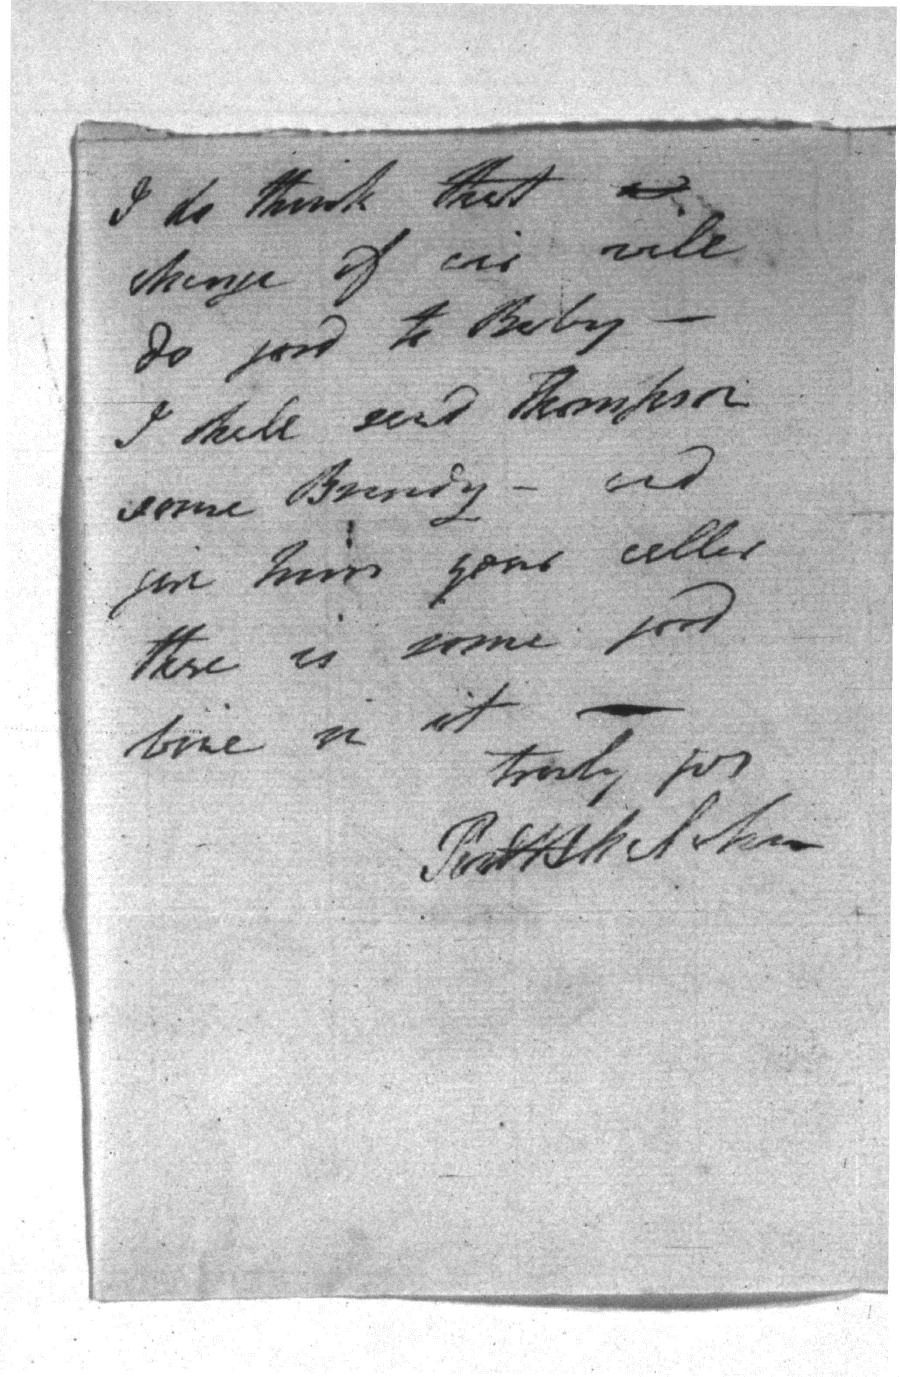 I do think that a
change of air will
do good to Baby —
I shall send Thompson
some Brandy — and
give him your cellar
there is some good
wine in it —
truly yrs